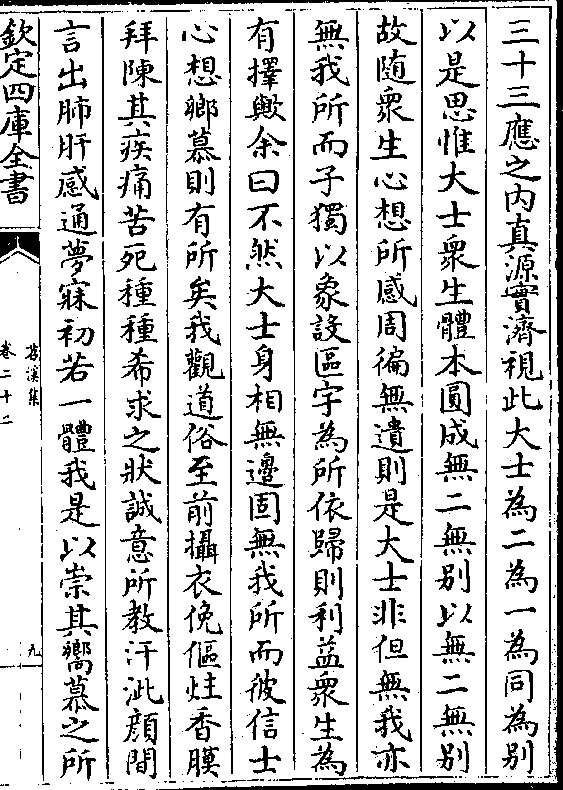 三十三應之内真源實濟視此大士為二為一為同為别
以是思惟大士衆生體本圓成無二無别以無二無别
故随衆生心想所感周徧無遺則是大士非但無我亦
無我所而子獨以象設區宇為所依歸則利益衆生為
有擇歟余曰不然大士身相無邊固無我所而彼信士
心想嚮慕則有所矣我觀道俗至前攝衣俛傴炷香膜
拜陳其疾痛苦死種種希求之狀誠意所教汗泚顔間
言出肺肝感通夢寐初若一體我是以崇其嚮慕之所
欽定四庫全書
苕溪集
卷二十二
九